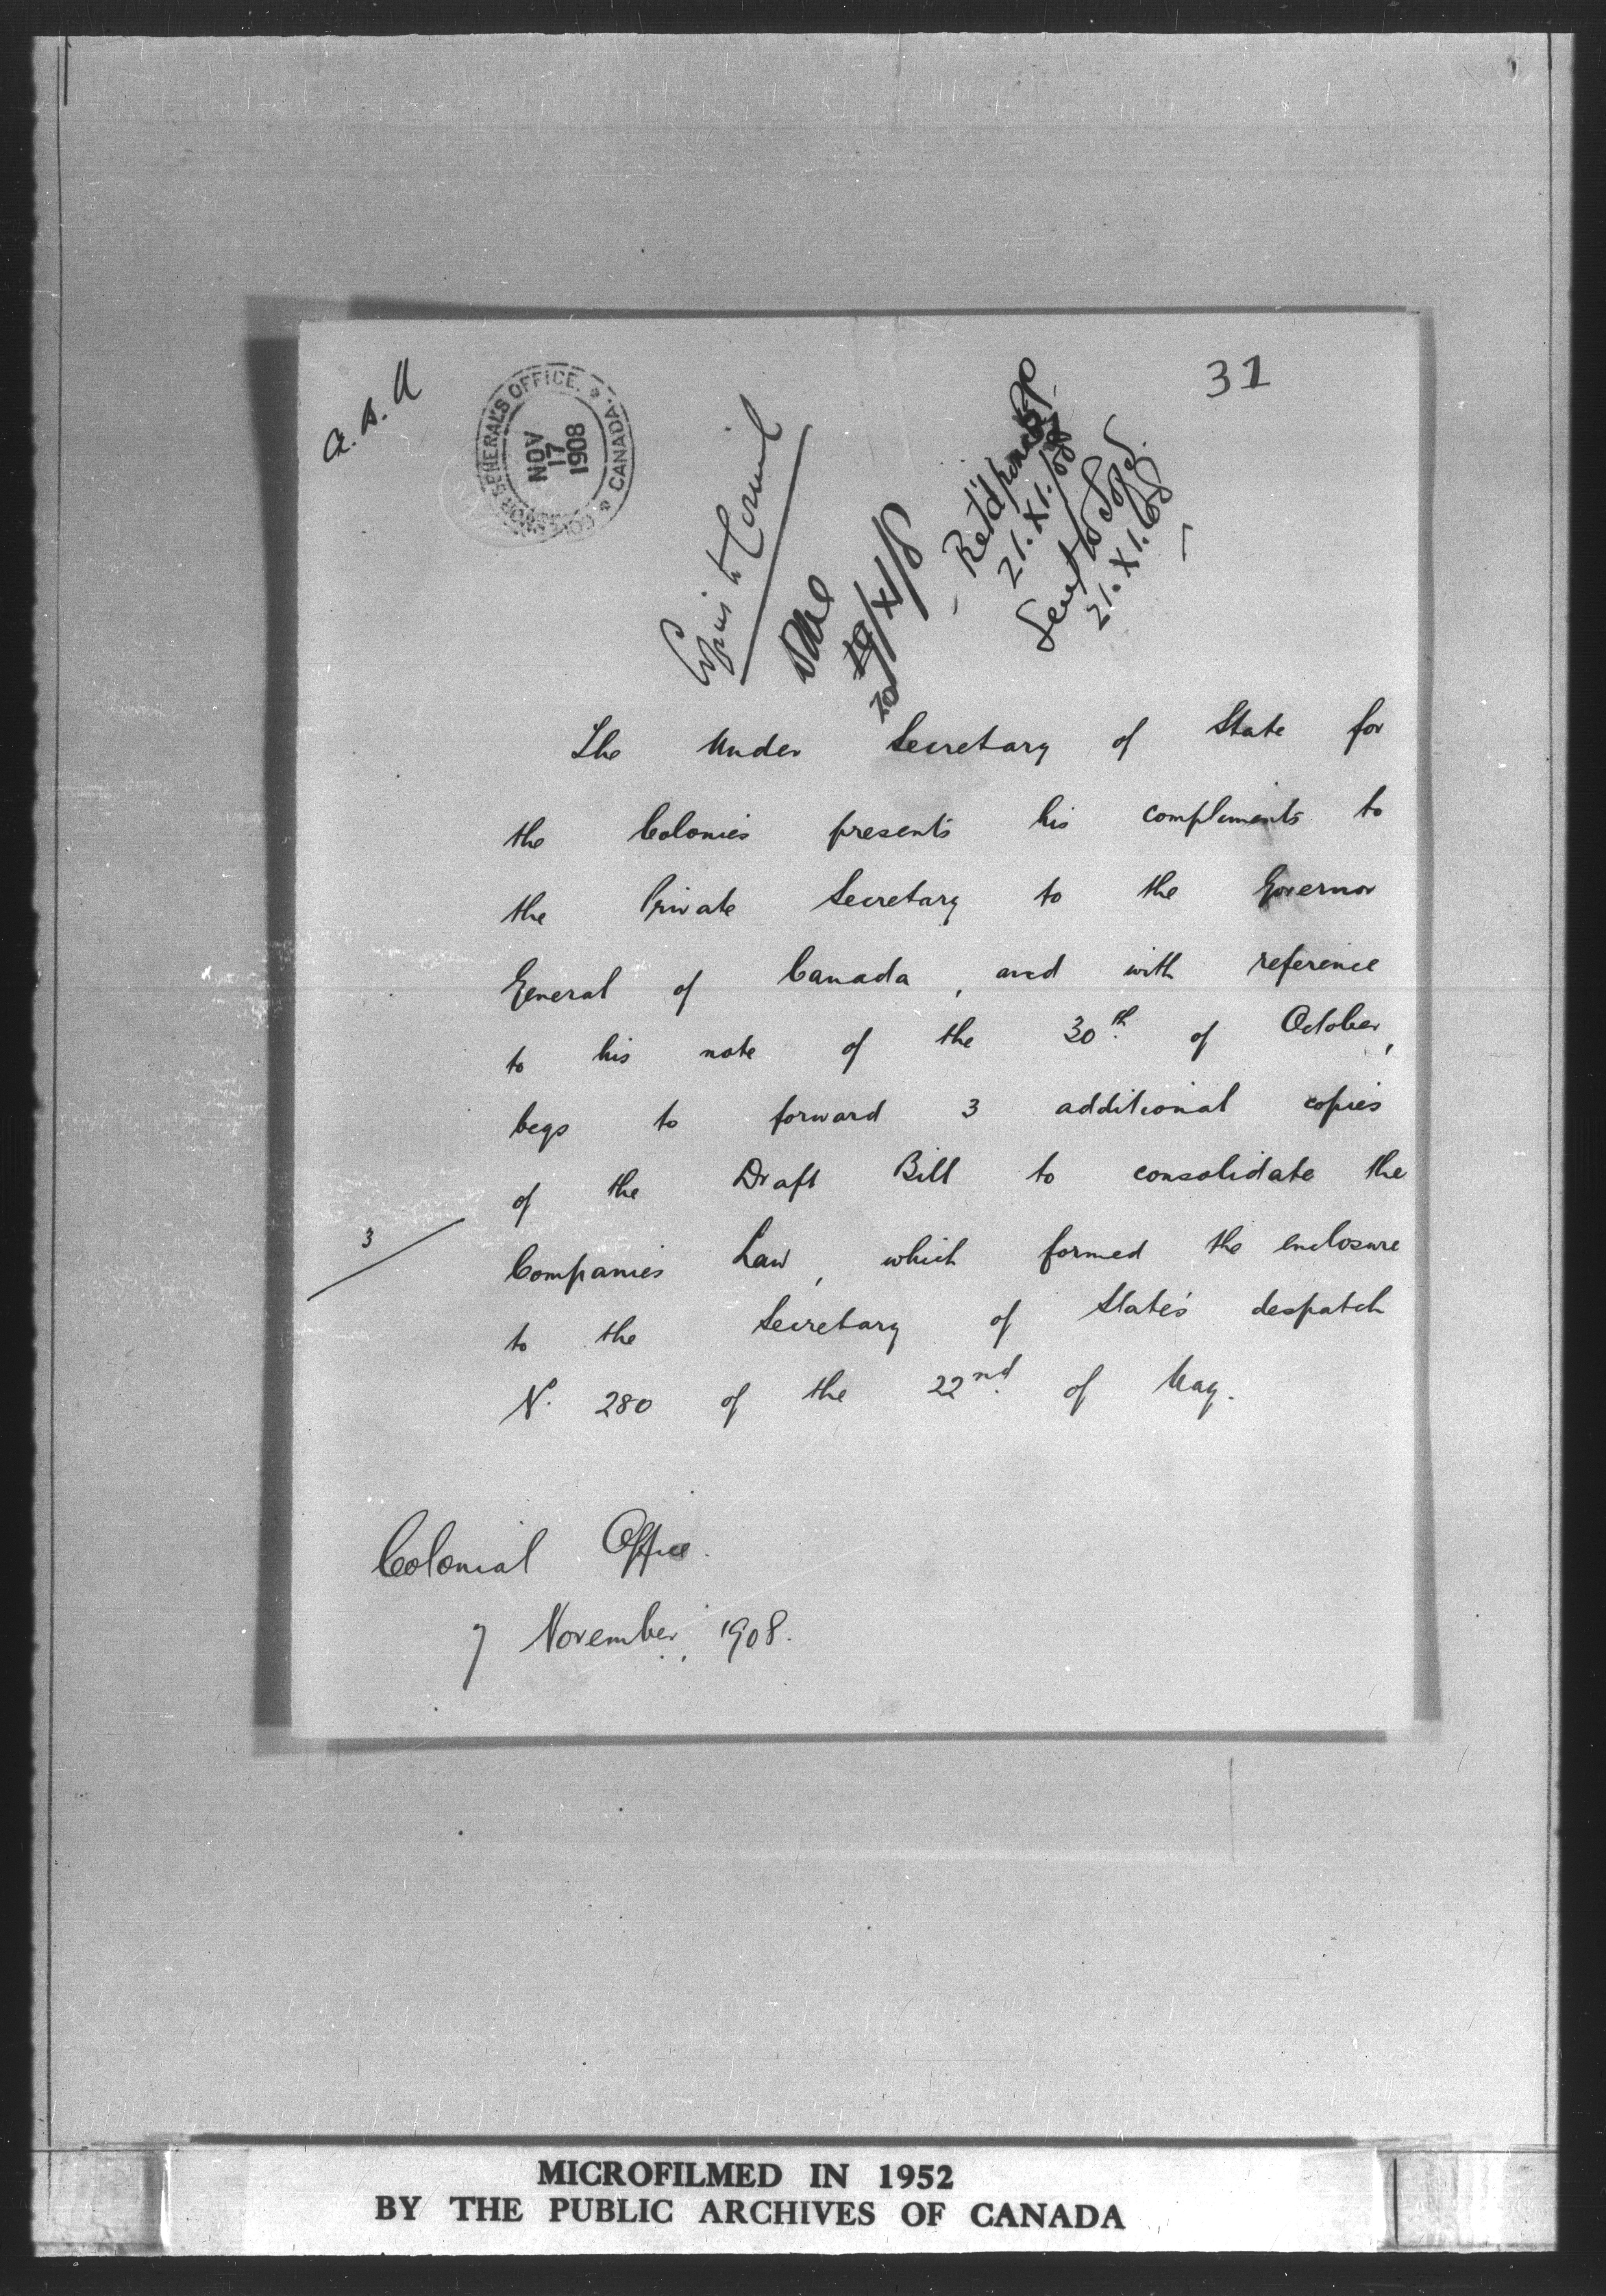 31
GOVERNOR GENERAL'S OFFICE. * CANADA. *
NOV
17
1908
Copies to Council
21.XI.08
Sent to
21.XI.08
The Under Secretary of State for
the Colonies presents his compliments to
the Private Secretary to the Governor
General of Canada, and with reference
to his note of the 30th. of October,
begs to forward 3 additional copies
of the Draft Bill to consolidate the
3
Companies Law, which formed the enclosure
to the Secretary of State's despatch
N. 280 of the 22nd. of May.
Colonial Office.
7 November, 1908.
MICROFILMED IN 1952
BY THE PUBLIC ARCHIVES OF CANADA